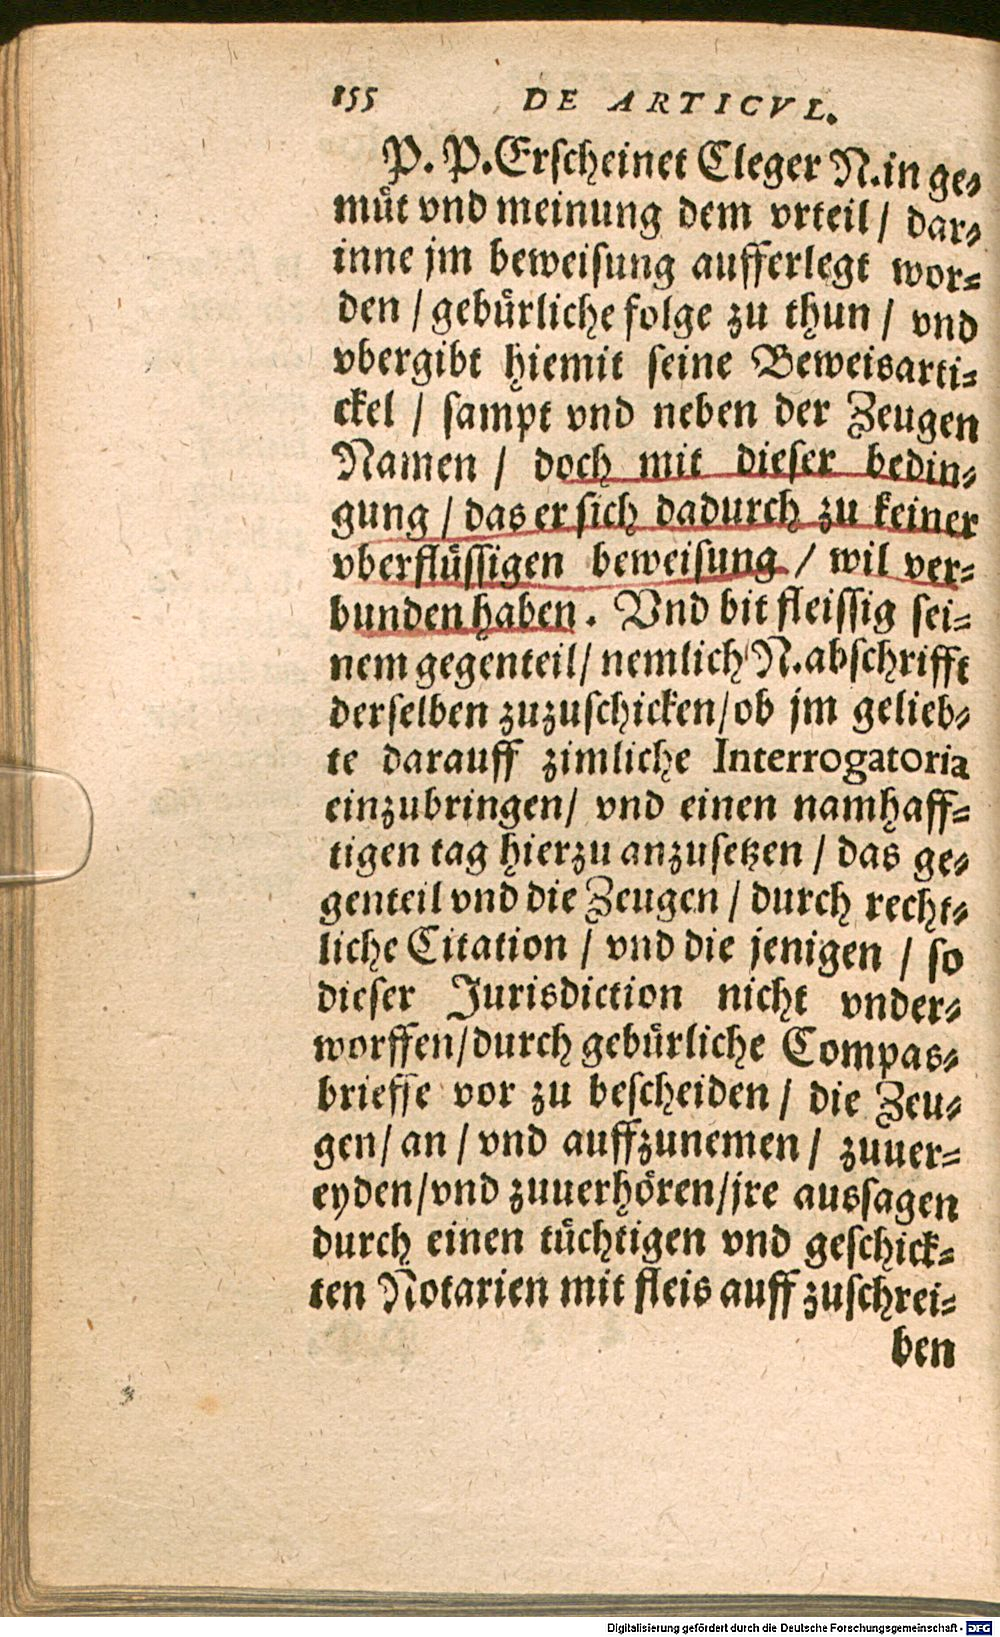 155 DE ARTICVL.
P. P. Erscheinet Cleger N. in ge-
muͤt vnd meinung dem vrteil / dar-
inne jm beweisung aufferlegt wor-
den / gebuͤrliche folge zu thun / vnd
vbergibt hiemit seine Beweisarti-
ckel / sampt vnd neben der Zeugen
Namen / doch mit dieser bedin-
gung / das er sich dadurch zu keiner
vberfluͤssigen beweisung / wil ver-
bunden haben. Vnd bit fleissig sei-
nem gegenteil / nemlich N. abschrifft
derselben zuzuschicken / ob jm gelieb-
te darauff zimliche Interrogatoria
einzubringen / vnd einen namhaff-
tigen tag hierzu anzusetzen / das ge-
genteil vnd die Zeugen / durch recht-
liche Citation / vnd die jenigen / so
dieser Jurisdiction nicht vnder-
worffen / durch gebuͤrliche Compas-
brieffe vor zu bescheiden / die Zeu-
gen / an / vnd auffzunemen / zuuer-
eyden / vnd zuuerhoͤren / jre aussagen
durch einen tuͤchtigen vnd geschick-
ten Notarien mit fleis auff zuschrei-
ben
Digitalisierung gefördert durch die Deutsche Forschungsgemeinschaft - DFG